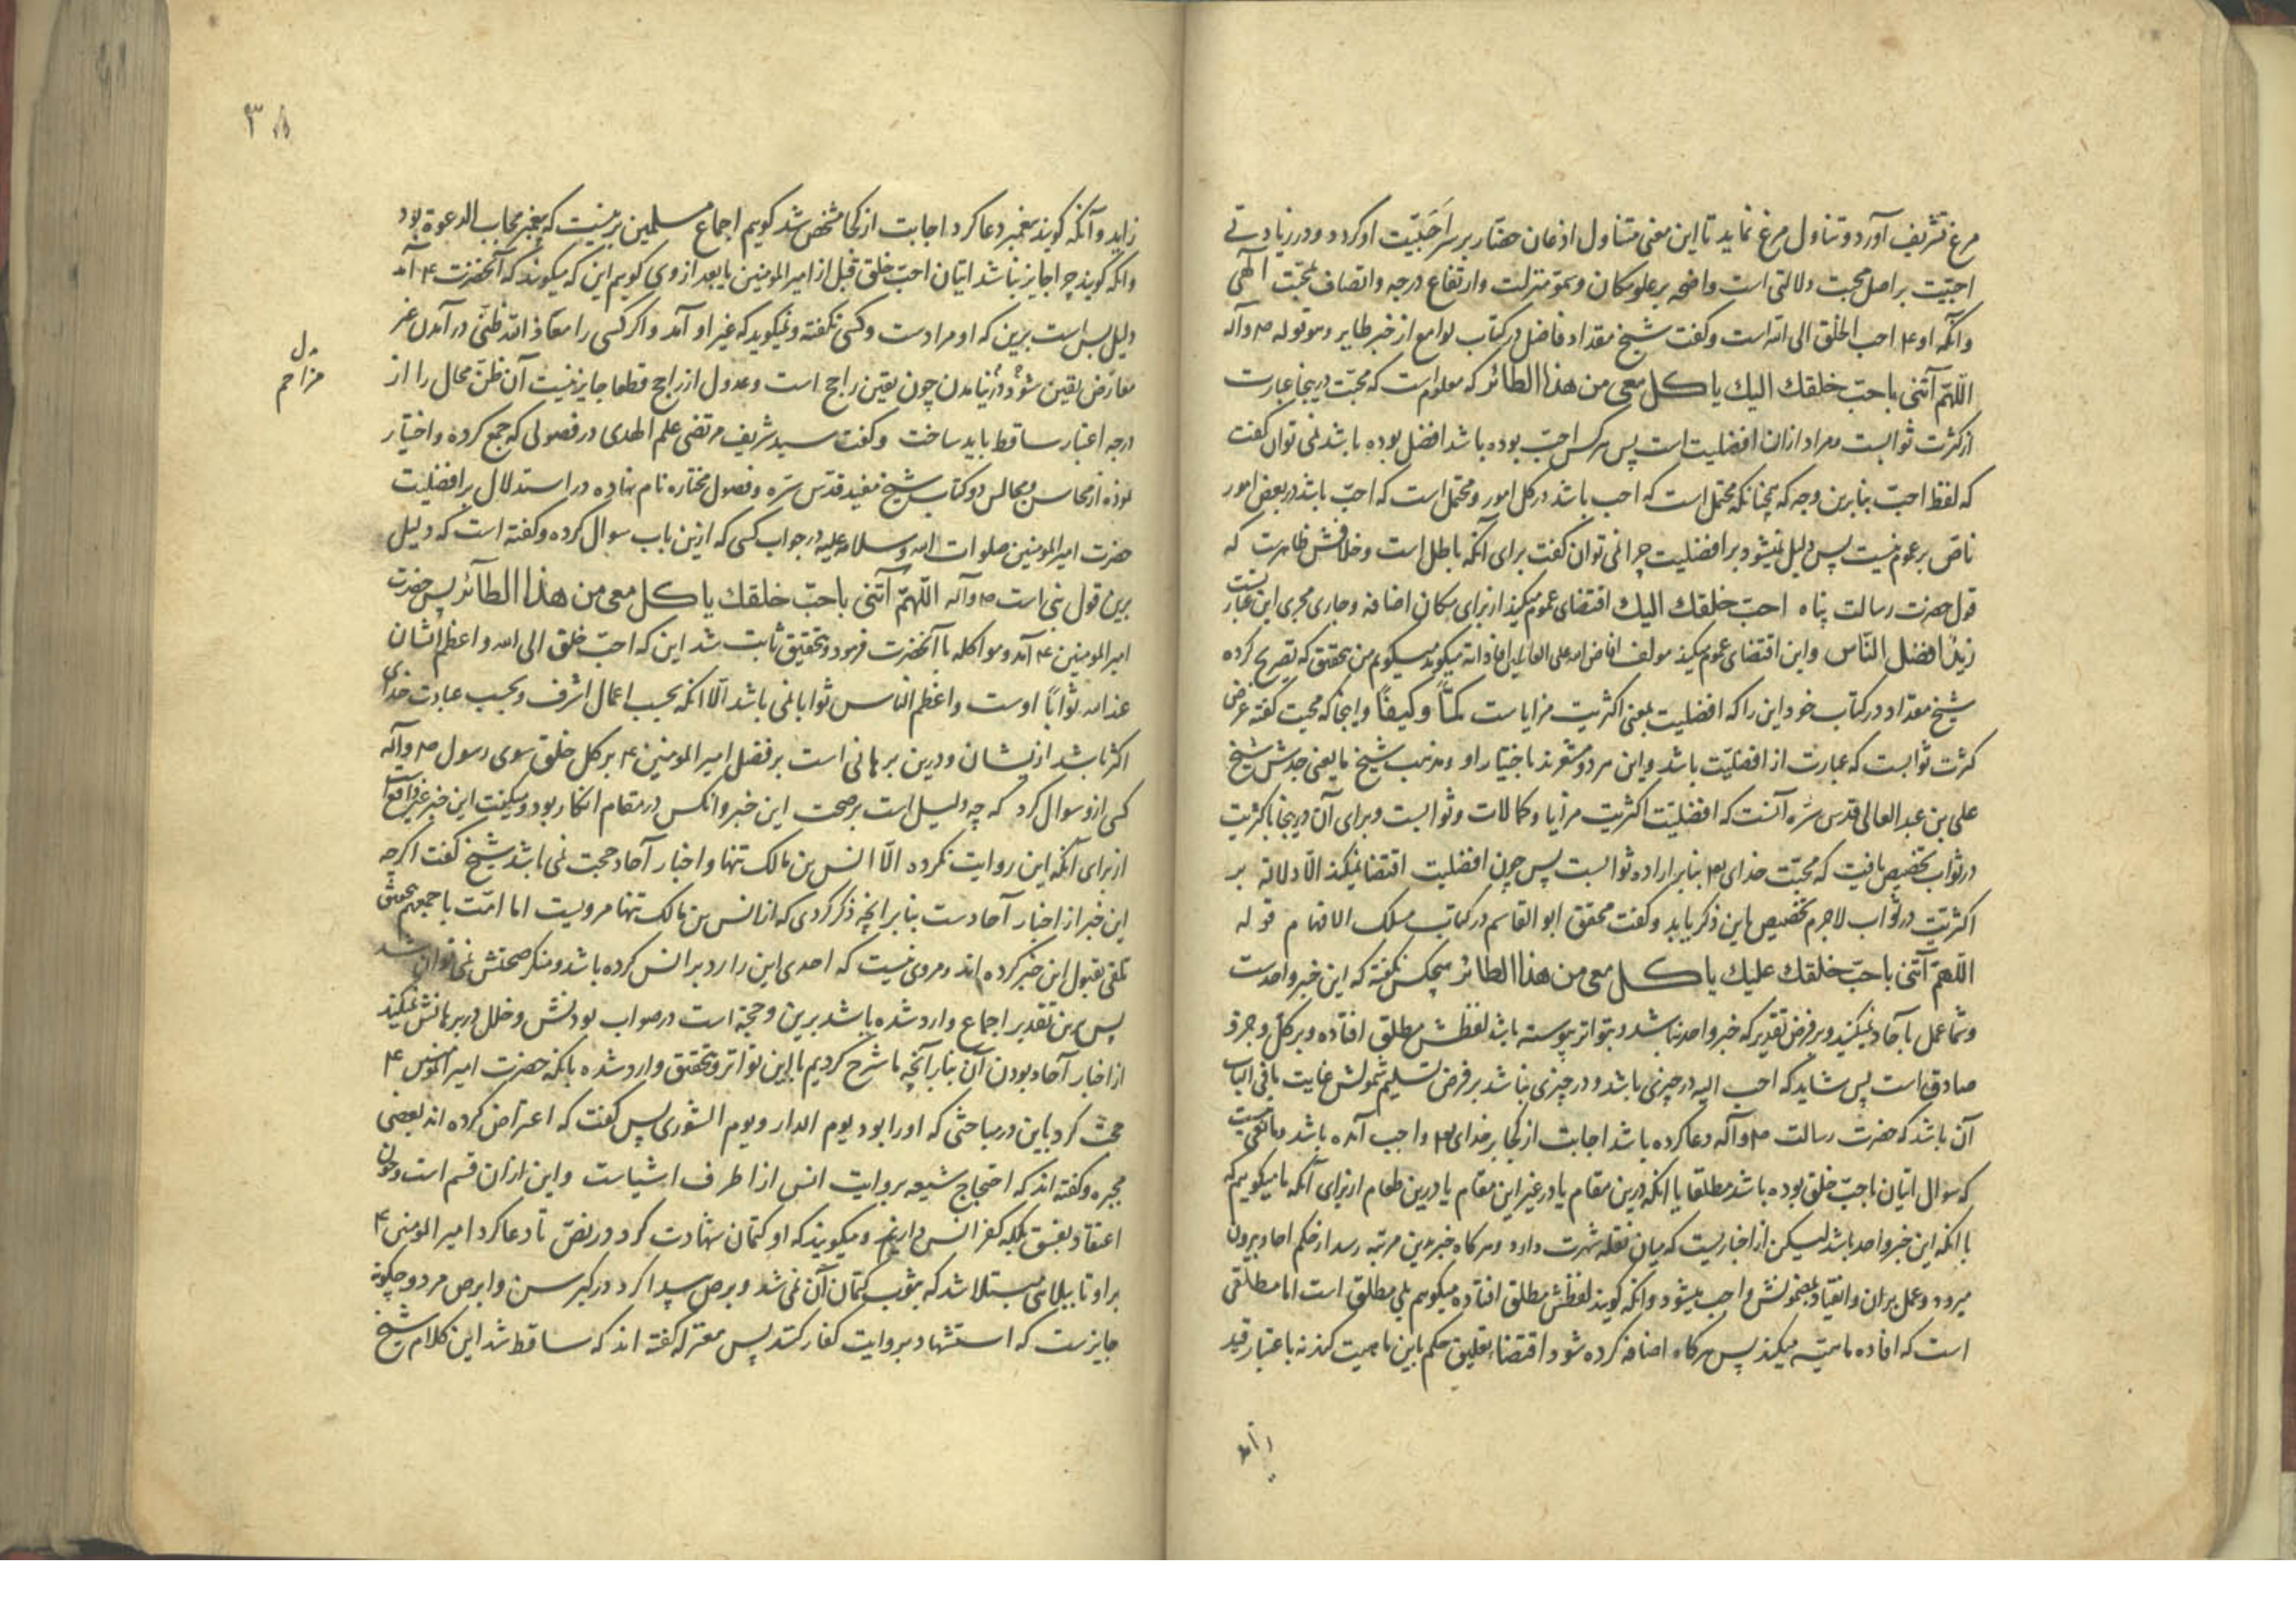 مرغ تشریف آورد و تناول مرغ نماید تا این معنی متناول اذعان حضار بر سر احبّیّت او کردد و در زیادتی
احبّیت بر اصل محبت دلالتی است واضحه بر علو مکان و سمّو منزلت و ارتفاع درجه و اتصاف بمحبّت الهی
و آنکه او ۴ احب الخلق الی الله است و کفت شیخ مقداد فاضل در کتاب لوامع از خبر طایر و هو قوله ص و آله
اللّهمّ آتنی باحبّ خلقك الیك یا کل معی من هذا الطائر که معلوم است که محبّت درینجا عبارت
از کثرت ثوابست و مراد ازان افضلیت است پس هر کس احبّ بوده باشد افضل بوده باشد نمی توان کفت
که لفظ احبّ بنا برین وجه که همچنانکه محتمل است که احب باشد در کل امور و محتمل است که احبّ باشد در بعض امور
ناص بر عموم نیست پس دلیل نمیشود بر افضلیت چرا نمی توان کفت برای آنکه باطل است و خلافش ظاهرست که
قول حضرت رسالت پناه احبّ خلقك الیك اقتضای عموم میکند از برای مکان اضافه و جاری مجری این عبارتست
زیدٌ افضل النّاس و این اقتضای عموم میکند مولف افاض الله علی العالمین افاداته میکوید میکویم من بتحقیق که تصریح کرده
شیخ مقداد در کتاب خود این را که افضلیت بمعنی اکثریت مزایاست کمّاً و کیفاً و اینجا که محبت کفته غرض
کثرت ثوابست که عبارت از افضلیّت باشد و این هر دو مشعرند باختیار او مذهب شیخ ما یعنی جدش شیخ
علی بن عبد العالی قدس سرّه آنست که افضلیّت اکثریت مزایا و کمالات و ثوابست و برای آن درینجا باکثریت
در ثواب تخصیص یافت که محبّت خدای تع بنا بر اراده ثوابست پس چون افضلیت اقتضا نمیکند الّا دلالة بر
اکثریّت در ثواب لاجرم تخصیص باین ذکر یابد و کفت محقق ابو القاسم در کتاب مسلک الافهام قوله
اللّهمّ آتنی باحبّ خلقك علیك یا کل معی من هذا الطائر هیچکس نکفته که این خبر واحدست
و شما عمل بآحاد نمیکنید و بر فرض تقدیر که خبر واحد نباشد و بتواتر پیوسته باشد لفظش مطلق افتاده و بر کلّ و جزو
صادق است پس شاید که احب الیه در چیزی باشد و در چیزی نباشد بر فرض تسلیم شمولش غایت ما فی الباب
آن باشد که حضرت رسالت ص و آله دعا کرده باشد اجابت از کجا بر خدای تع واجب آمده باشد
که سوال اتیان باحبّ خلق بوده باشد مطلقا یا آنکه درین مقام یا در غیر این مقام یا درین طعام از برای آنکه ما میکوییم که
با آنکه این خبر واحد باشد لیکن از اخباریست که میان نقله شهرت دارد و هر کاه خبر بدین مرتبه رسد از حکم احاد بیرون
میرود و عمل بران و انقیاد بمضمونش واجب میشود و آنکه کویند لفظش مطلق افتاده میکوییم بلی مطلق است اما مطلقی
است که افاده ماهیّه میکند پس هر کاه اضافه کرده شود اقتضاء تعلیق حکم باین ماهیت کند نه باعتبار قید
زاید
۳۸
زاید و آنکه کویند پیغمبر دعا کرد اجابت از کجا مشخص شد کویم اجماع مسلمین برینست که پیغمبر مجاب الدعوة بود
و آنکه کویند چرا جایز نباشد اتیان احبّ خلق قبل از امیر المومنین یا بعد از وی کویم این که میکویند که آنحضرت ۴ آمد
دلیل بس است برین که او مرادست و کسی نکفته و نمیکوید که غیر او آمد و اکر کسی را معاذ الله ظنّی در آمدن غیر
معارض یقین شود در نیامدن چون یقین راجح است و عدول از راجح قطعا جایز نیست آن ظنّ محال را از
درجه اعتبار ساقط باید ساخت و کفت سید شریف مرتضی علم الهدی در فصولی که جمع کرده و اختیار
نموده از محاسن و مجالس دو کتاب شیخ مفید قدّس سرّه و فصول مختاره نام نهاده در استدلال بر افضلیت
حضرت امیر المومنین صلوات الله و سلامه علیه در جواب کسی که ازین باب سوال کرده و کفته است که دلیل
برین قول نبی است ص و آله اللّهمّ آتنی باحبّ خلقك یا کل معی من هذا الطآئر پس حضرت
امیر المومنین ۴ آمد و مواکله با آنحضرت فرمود و بتحقیق ثابت شد این که احبّ خلق الی الله و اعظم ایشان
عند الله ثواباً اوست و اعظم الناس ثوابا نمی باشد الّا آنکه بحسب اعمال اشرف و بحسب عبادت خدای
اکثر باشد از یشان و درین برهانی است بر فضل امیر المومنین ۴ بر کل خلق سوی رسول ص و آله
کسی ازو سوال کرد که چه دلیل است بر صحت این خبر و آنکس در مقام انکار بود و میکفت این خبر غیر واقع است
از برای آنکه این روایت نکرده الّا انس بن مالک تنها و اخبار آحاد حجت نمی باشد شیخ کفت اکرچه
این خبر از اخبار آحادست بنا بر آنچه ذکر کردی که از انس بن مالک تنها مرویست اما امّت باجمعهم بتحقیق
تلقّی بقبول این خبر کرده اند و مروی نیست که احدی این را رد بر انس کرده باشد و منکر صحتش نمی توان شد
پس برین تقدیر اجماع وارد شده باشد برین و حجة است در صواب بودنش و خلل در برهانش نمیکند
از اخبار آحاد بودن آن بنا بر آنچه ما شرح کردیم با این تواتر و تحقق وارد شده بآنکه حضرت امیر المومنین ۴
محبّت کرد باین در مباحثی که او را بود یوم الدار و یوم الشوری پس کفت که اعتراض کرده اند بعضی
مجبره و کفته اند که احتجاج شیعه بروایت انس از اطرف اشیاست و این ازان قسم است و چون
اعتقاد بفسق بلکه کفر انس دارند و میکویند که او کتمان شهادت کرد در نصّ تا دعا کرد امیر المومنین ۴
بر او تا ببلائی مبتلا شد که بثوب کتمان آن نمی شد و برص پیدا کرد در کبر سن و ابرص مرد و چکونه
جایزست که استشهاد بروایت کفار کنند پس معتزله کفته اند که ساقط شد این کلام شیخ